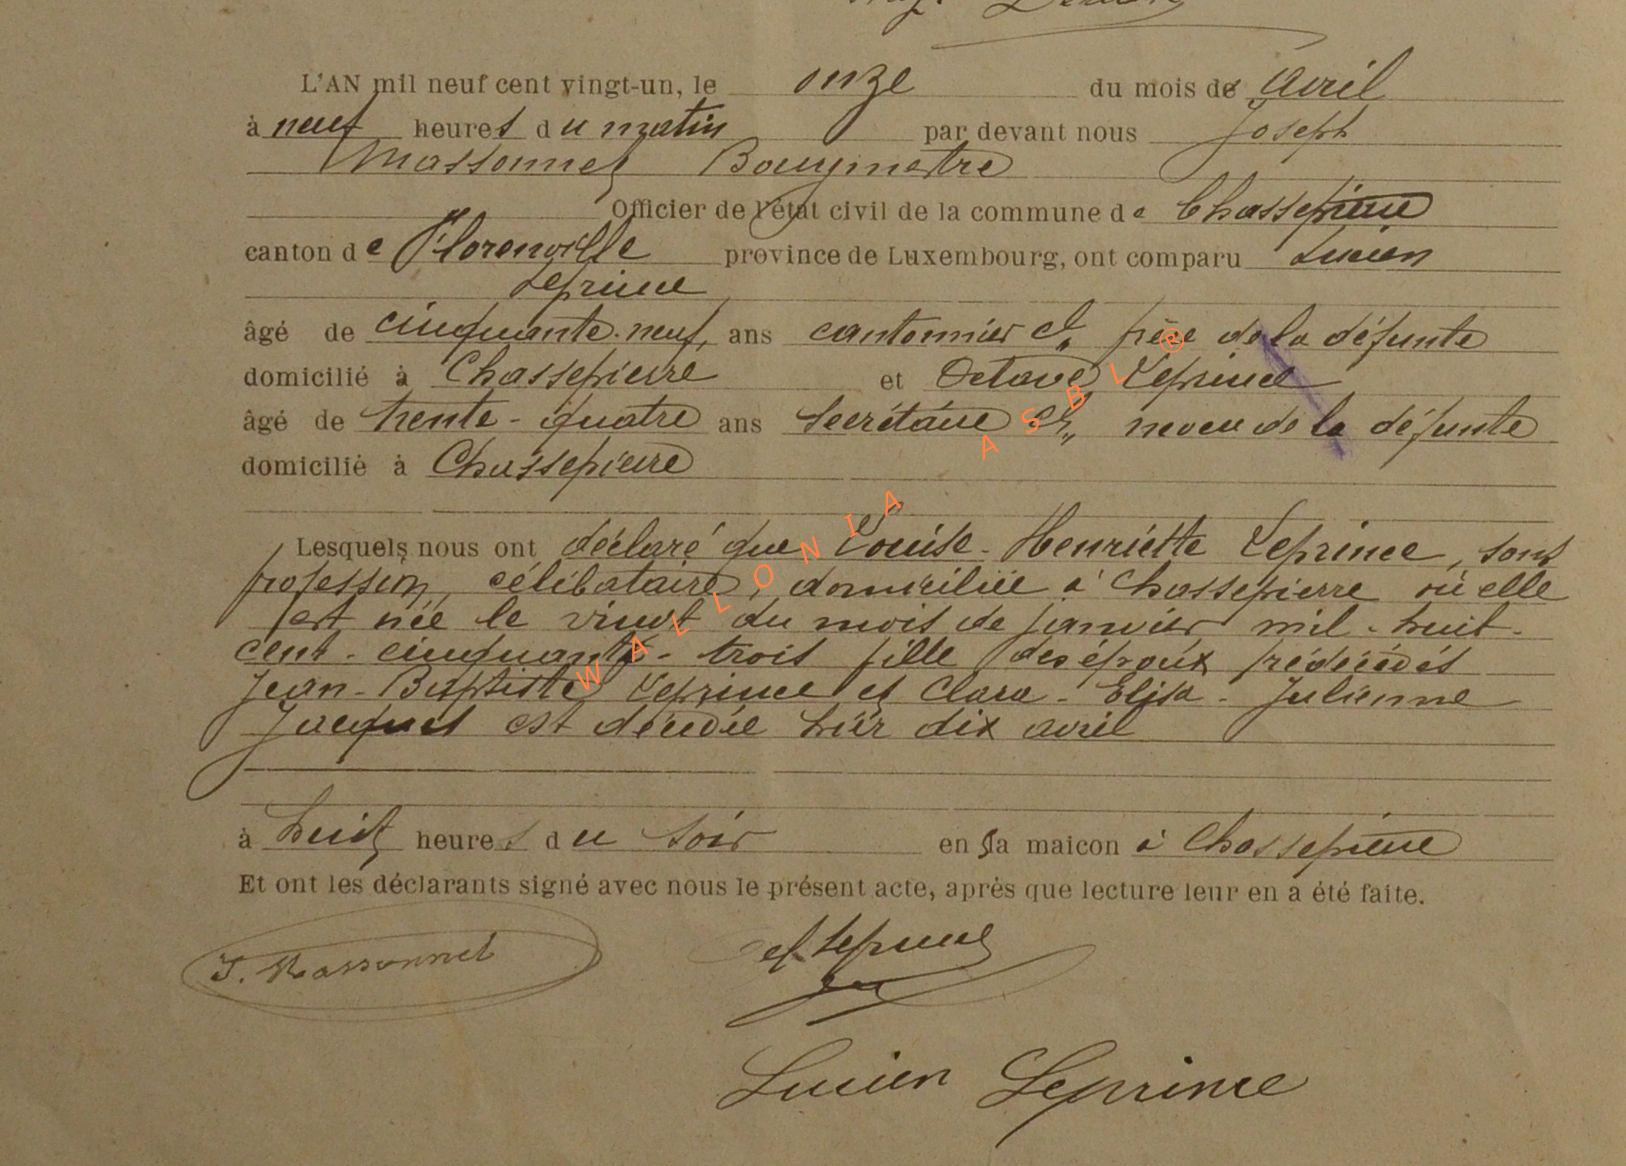 L'AN mil neuf cent vingt-un, le onze du mois de avril
à neuf heures du matin par devant nous Joseph
Massonnet Bourgmestre
Officier de l'état civil de la commune de Chassepierre
canton de Florenville province de Luxembourg, ont comparu Lucien
Leprince
âgé de cinquante-neuf, ans cantonnier et frère de la défunte
domicilié à Chassepierre et Octave Leprince
âgé de trente-quatre ans Secrétaire et neveu de la défunte
domicilié à Chassepierre
Lesquels nous ont déclaré que Louise-Henriette Leprince, sans
profession, célibataire, domiciliée à Chassepierre où elle
est née le vingt du mois de janvier mil-huit-
cent-cinquante-trois fille des époux prédécédés
Jean-Baptiste Leprince et Clara-Elisa-Julienne
Jacques est décédée hier dix avril
à huit heures du soir en sa maicon à Chassepierre
Et ont les déclarants signé avec nous le présent acte, après que lecture leur en a été faite.
J. Massonnet
Leprince
Lucien Leprince
WALLONIA ASBL ®